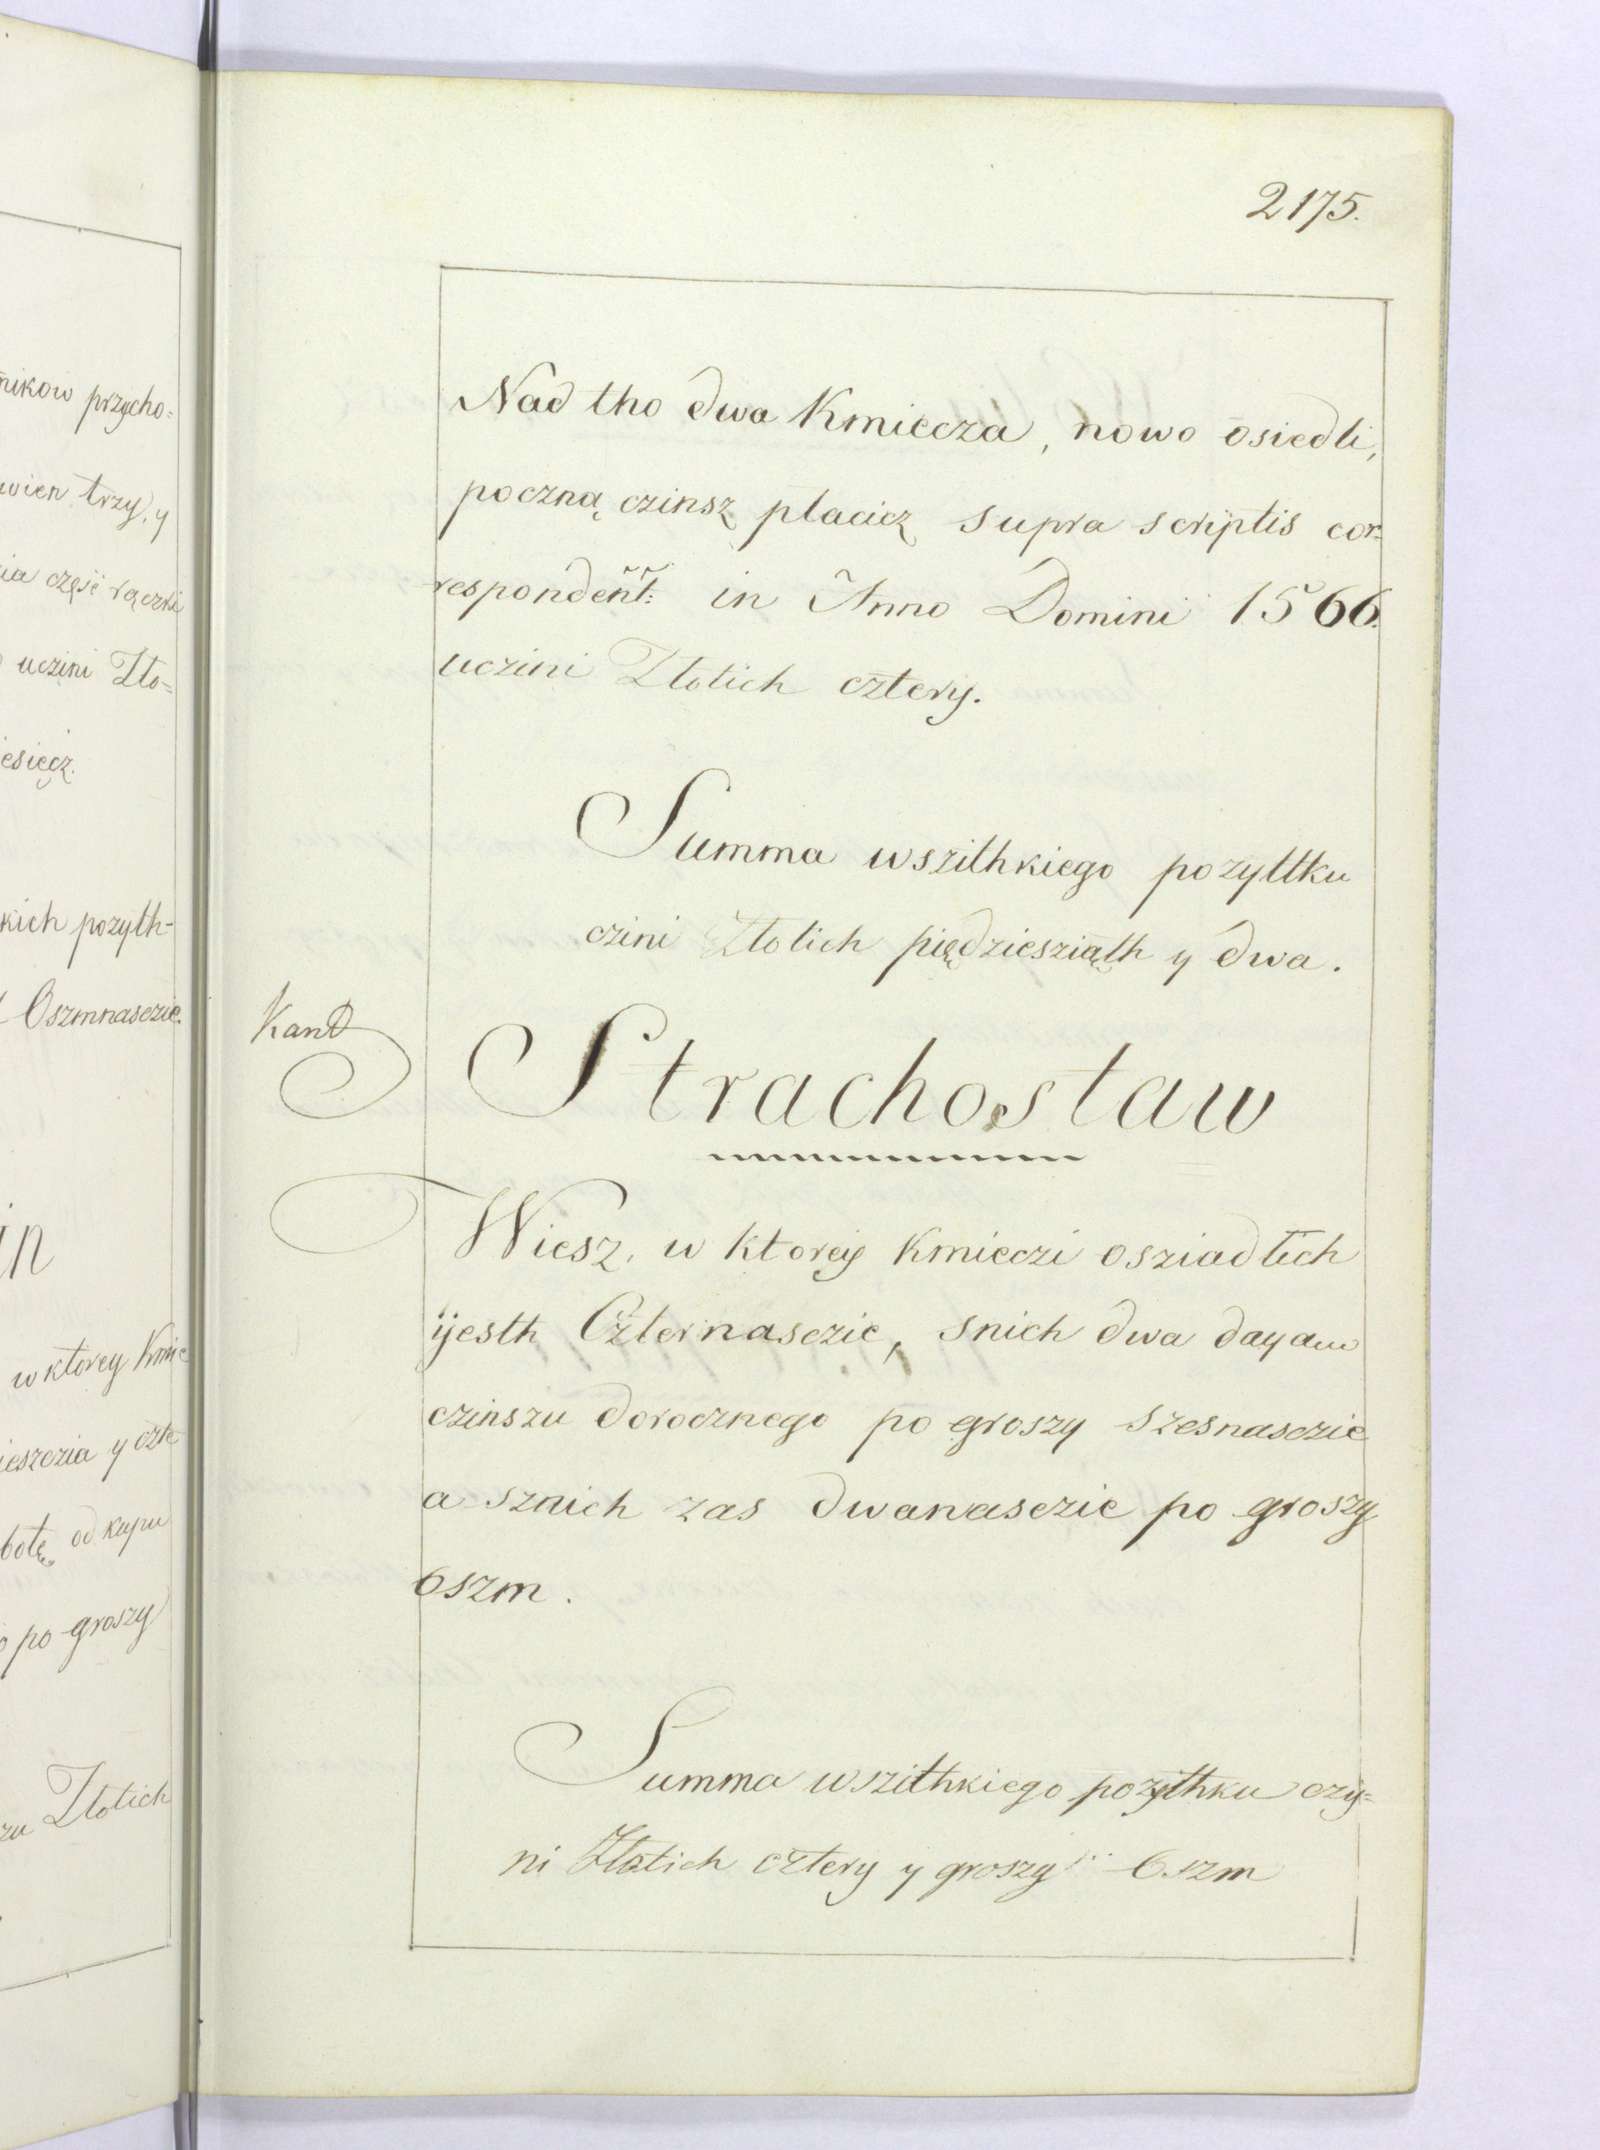 nikow przycho=
wien trzy, y
ia część rączki
uczini Zło=
iesięcz.
kich pozyth=
Oszmnasczie.
in
w ktorey Kmie
ieszczia y czte
botę od kupu
po groszy
zu Złotich
2175.
Nad tho dwa Kmiecza, nowo osiedli,
poczną czinsz płacicz supra scriptis cor=
respondeñt: in Anno Domini 1566.
uczini Złotich cztery.
Summa wszithkiego pozyttku
czini Złotich piędziesziąth y dwa.
Kand
Strachosław
Wiesz, w ktorey Kmieczi osziadłich
ÿesth Czternasczie, snich dwa dayam
czinszu dorocznego po groszy szesnasczie
a sznich zas dwanasczie po groszy
oszm.
Summa wszithkiego pozythku czy=
ni Złotich cztery y groszy oszm